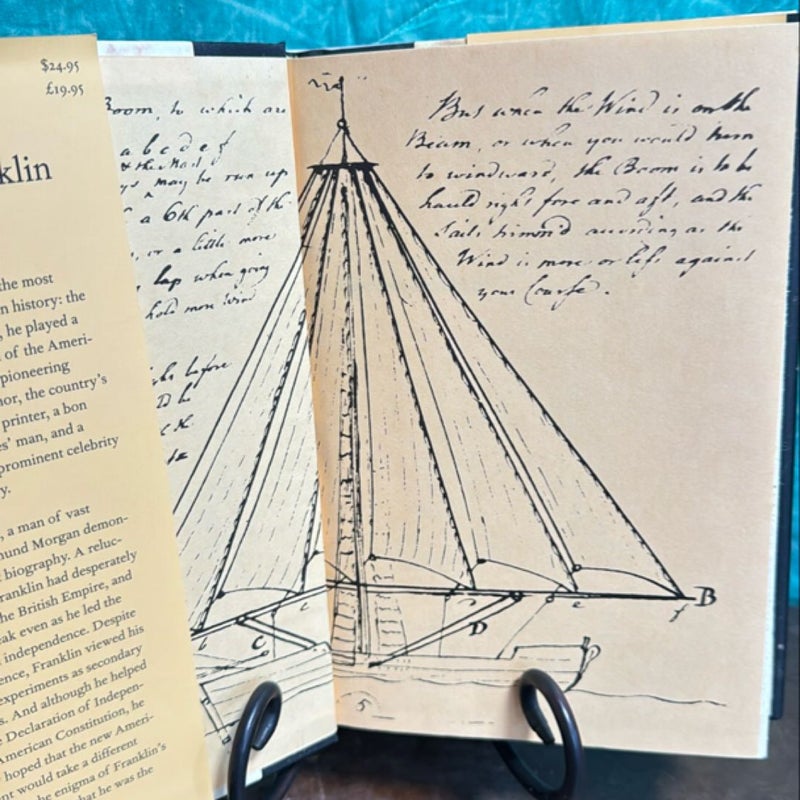 $24.95
£19.95
klin
the most
n history: the
, he played a
of the Ameri-
pioneering
nor, the country's
printer, a bon
es' man, and a
prominent celebrity
y.
, a man of vast
mund Morgan demon-
biography. A reluc-
ranklin had desperately
he British Empire, and
ak even as he led the
independence. Despite
ence, Franklin viewed his
experiments as secondary
s. And although he helped
e Declaration of Indepen-
American Constitution, he
hoped that the new Ameri-
nt would take a different
he enigma of Franklin's
hat he was the
Boom, to which are
a b c d e f
& the Mast
may be run up
a 6th part of the
, or a little more
lap when going
hold more Wind
before
But when the Wind is on the
Beam, or when you would turn
to windward, the Boom is to be
haul'd right fore and aft, and the
Sails trimm'd according as the
Wind is more or less against
your Course.
b
C
c
D
e
f
B